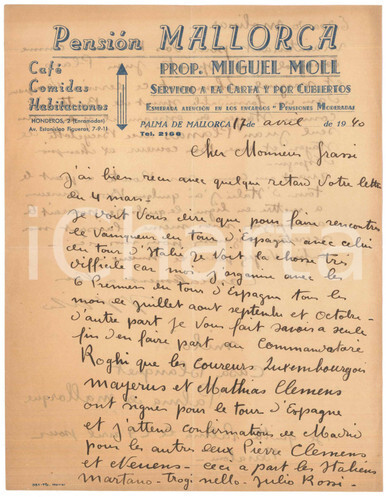 Pensión MALLORCA
Café
Comidas
Habitaciones
HONDEROS, 2 (Ensanche)
Av. Estanislao Figueras, 7-9-11
PROP. MIGUEL MOLL
SERVICIO A LA CARTA Y POR CUBIERTOS
ESMERADA ATENCIÓN EN LOS ENCARGOS * PENSIONES MODERADAS
PALMA DE MALLORCA 17 de avril de 1940
Tel. 2188
Cher Monsieur Grassi
J'ai bien recu avec quelque retard Votre lettre
du 4 mars-
Je dois Vous dire que pour faire rencontrer
le Vainqueur du tour d'Espagne avec celui
du tour d'Italie je Vois la chose très
difficile car moi j'organise avec les
6 Premiers du tour d'Espagne tous les
mois de juillet aout septembre et Octobre-
d'autre part je Vous fait savoir a seule
fin d'en faire part au Commandataire
Roghi que les Coureurs Luxembourgois
mayerus et Mathias Clemens
ont signer pour le tour d'Espagne
et j'attend confirmations de Madrid
pour les autres deux Pierre Clemens
et Neuens - ceci a part les Italiens
Martano - trogi nello - Julio Rossi -
iCharta